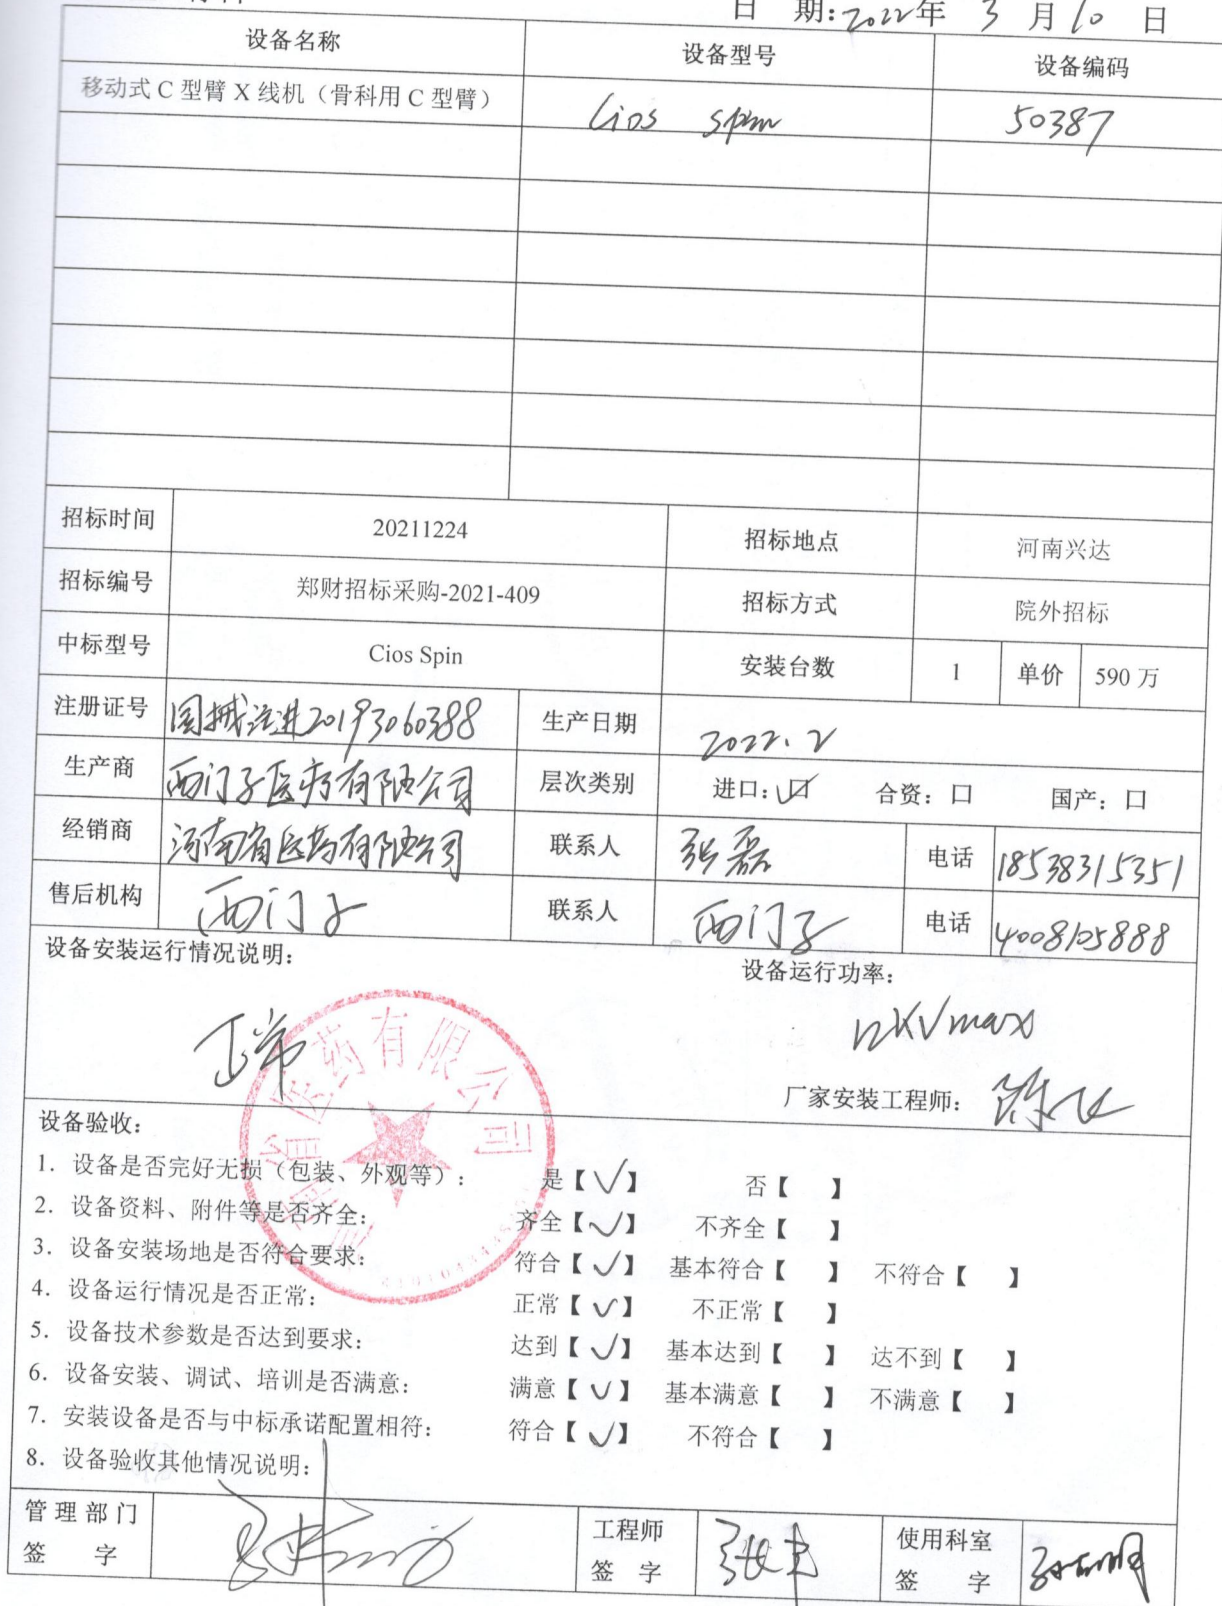 日 期:2022年 3 月 10 日
设备名称 设备型号 设备编码
移动式 C 型臂 X 线机（骨科用 C 型臂） Cios Spin 50387
招标时间 20211224 招标地点 河南兴达
招标编号 郑财招标采购-2021-409 招标方式 院外招标
中标型号 Cios Spin 安装台数 1 单价 590 万
注册证号 国械注进20193060388 生产日期 2022.2
生产商 西门子医疗有限公司 层次类别 进口：☑ 合资：口 国产：口
经销商 河南省医药有限公司 联系人 张磊 电话 18538315351
售后机构 西门子 联系人 西门子 电话 4008105888
设备安装运行情况说明： 设备运行功率：
正常 kVmax
省医药有限公司
厂家安装工程师：
设备验收：
1. 设备是否完好无损（包装、外观等）： 是【✓】 否【 】
2. 设备资料、附件等是否齐全： 齐全【✓】 不齐全【 】
3. 设备安装场地是否符合要求： 符合【✓】 基本符合【 】 不符合【 】
4. 设备运行情况是否正常： 正常【✓】 不正常【 】
5. 设备技术参数是否达到要求： 达到【✓】 基本达到【 】 达不到【 】
6. 设备安装、调试、培训是否满意： 满意【✓】 基本满意【 】 不满意【 】
7. 安装设备是否与中标承诺配置相符： 符合【✓】 不符合【 】
8. 设备验收其他情况说明：
管 理 部 门 工程师 使用科室
签 字 签 字 签 字